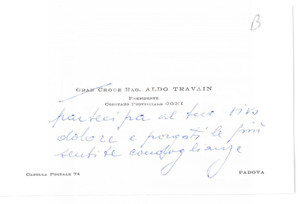 B
GRAN CROCE RAG. ALDO TRAVAIN
PRESIDENTE
COMITATO PROVINCIALE CONI
partecipa al tuo vivo
dolore e porgeti le più
sentite condoglianze
CASELLA POSTALE 74 PADOVA